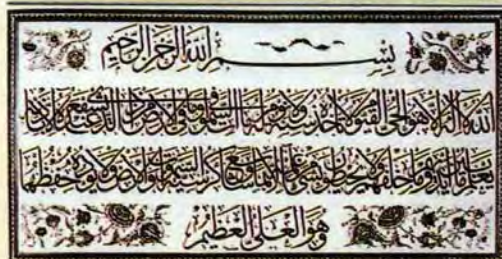 بسم الله الرحمن الرحيم
الله لا اله الا هو الحي القيوم لا تاخذه سنة ولا نوم له ما في السموات وما في الارض من ذا الذي يشفع عنده الا باذنه
يعلم ما بين ايديهم وما خلفهم ولا يحيطون بشيء من علمه الا بما شاء وسع كرسيه السموات والارض ولا يؤده حفظهما
وهو العلي العظيم